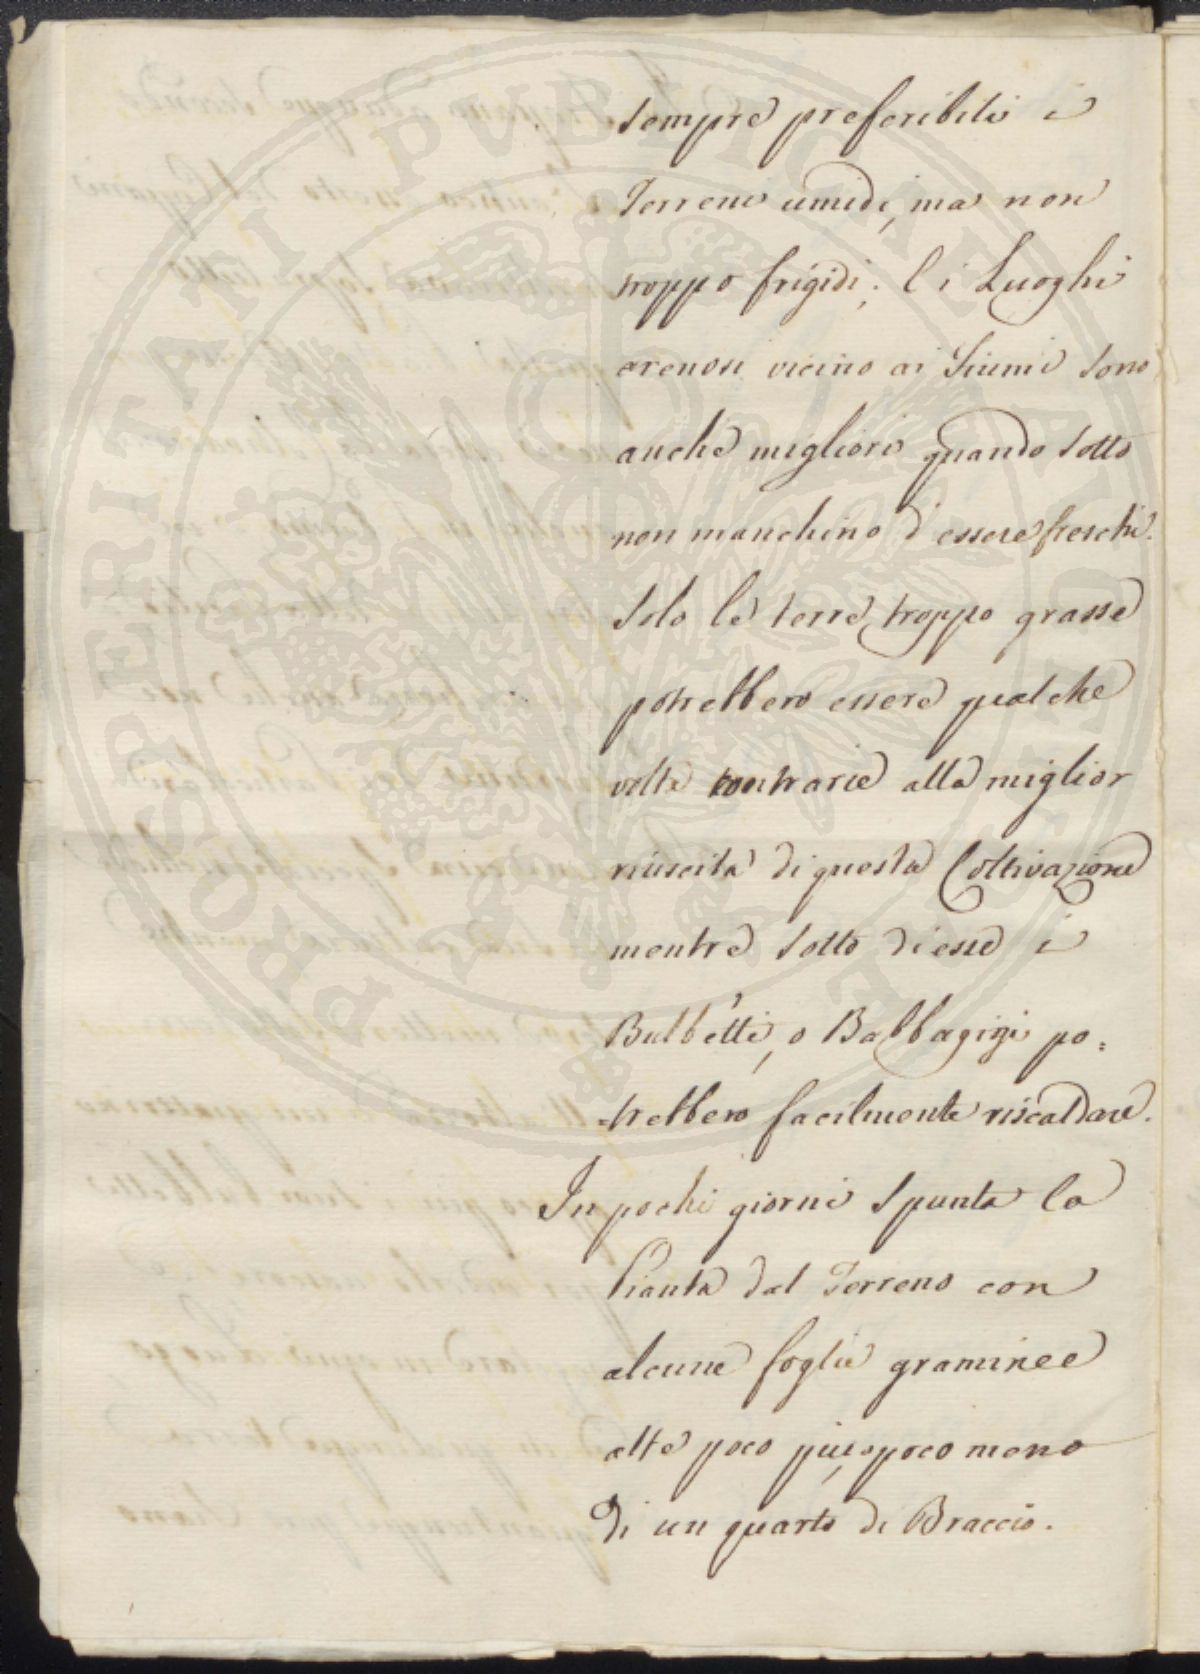 sempre preferibili i
Terreni umidi, ma non
troppo frigidi; e i Luoghi
arenosi vicino ai Fiumi sono
anche migliori quando sotto
non manchino d'essere freschi.
Solo le terre troppo grasse
potrebbero essere qualche
volta contrarie alla miglior
riuscita di questa Coltivazione
mentre sotto di esse i
Bulbetti, o Babbagigi po=
=trebbero facilmente riscaldare.
In pochi giorni spunta la
Pianta dal Terreno con
alcune foglie graminee
alte poco più, o poco meno
di un quarto di Braccio.
PROSPERITATI PUBLICAE AUGENDAE